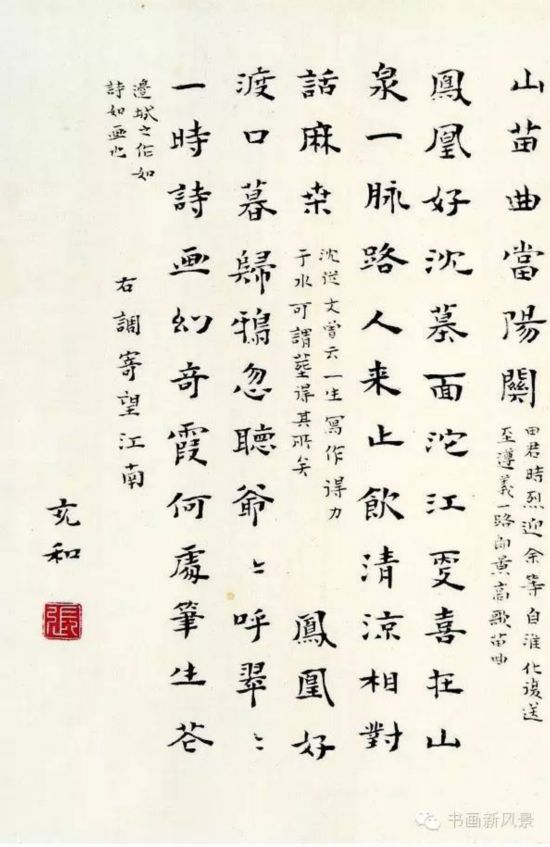 山苗曲當陽關
田君時烈迎余等自淮化復送
至遵義一路高歌苗曲
鳳凰好沈墓面沱江更喜在山
泉一脉路人来止飲清涼相對
話麻桒
沈從文曾云一生寫作得力
于水可謂塟得其所矣
鳳凰好
渡口暮歸鴉忽聽爺〻呼翠〻
一時詩画幻奇霞何處筆生花
邊城之作如
詩如画也
右調寄望江南
充和
張
书画新风景